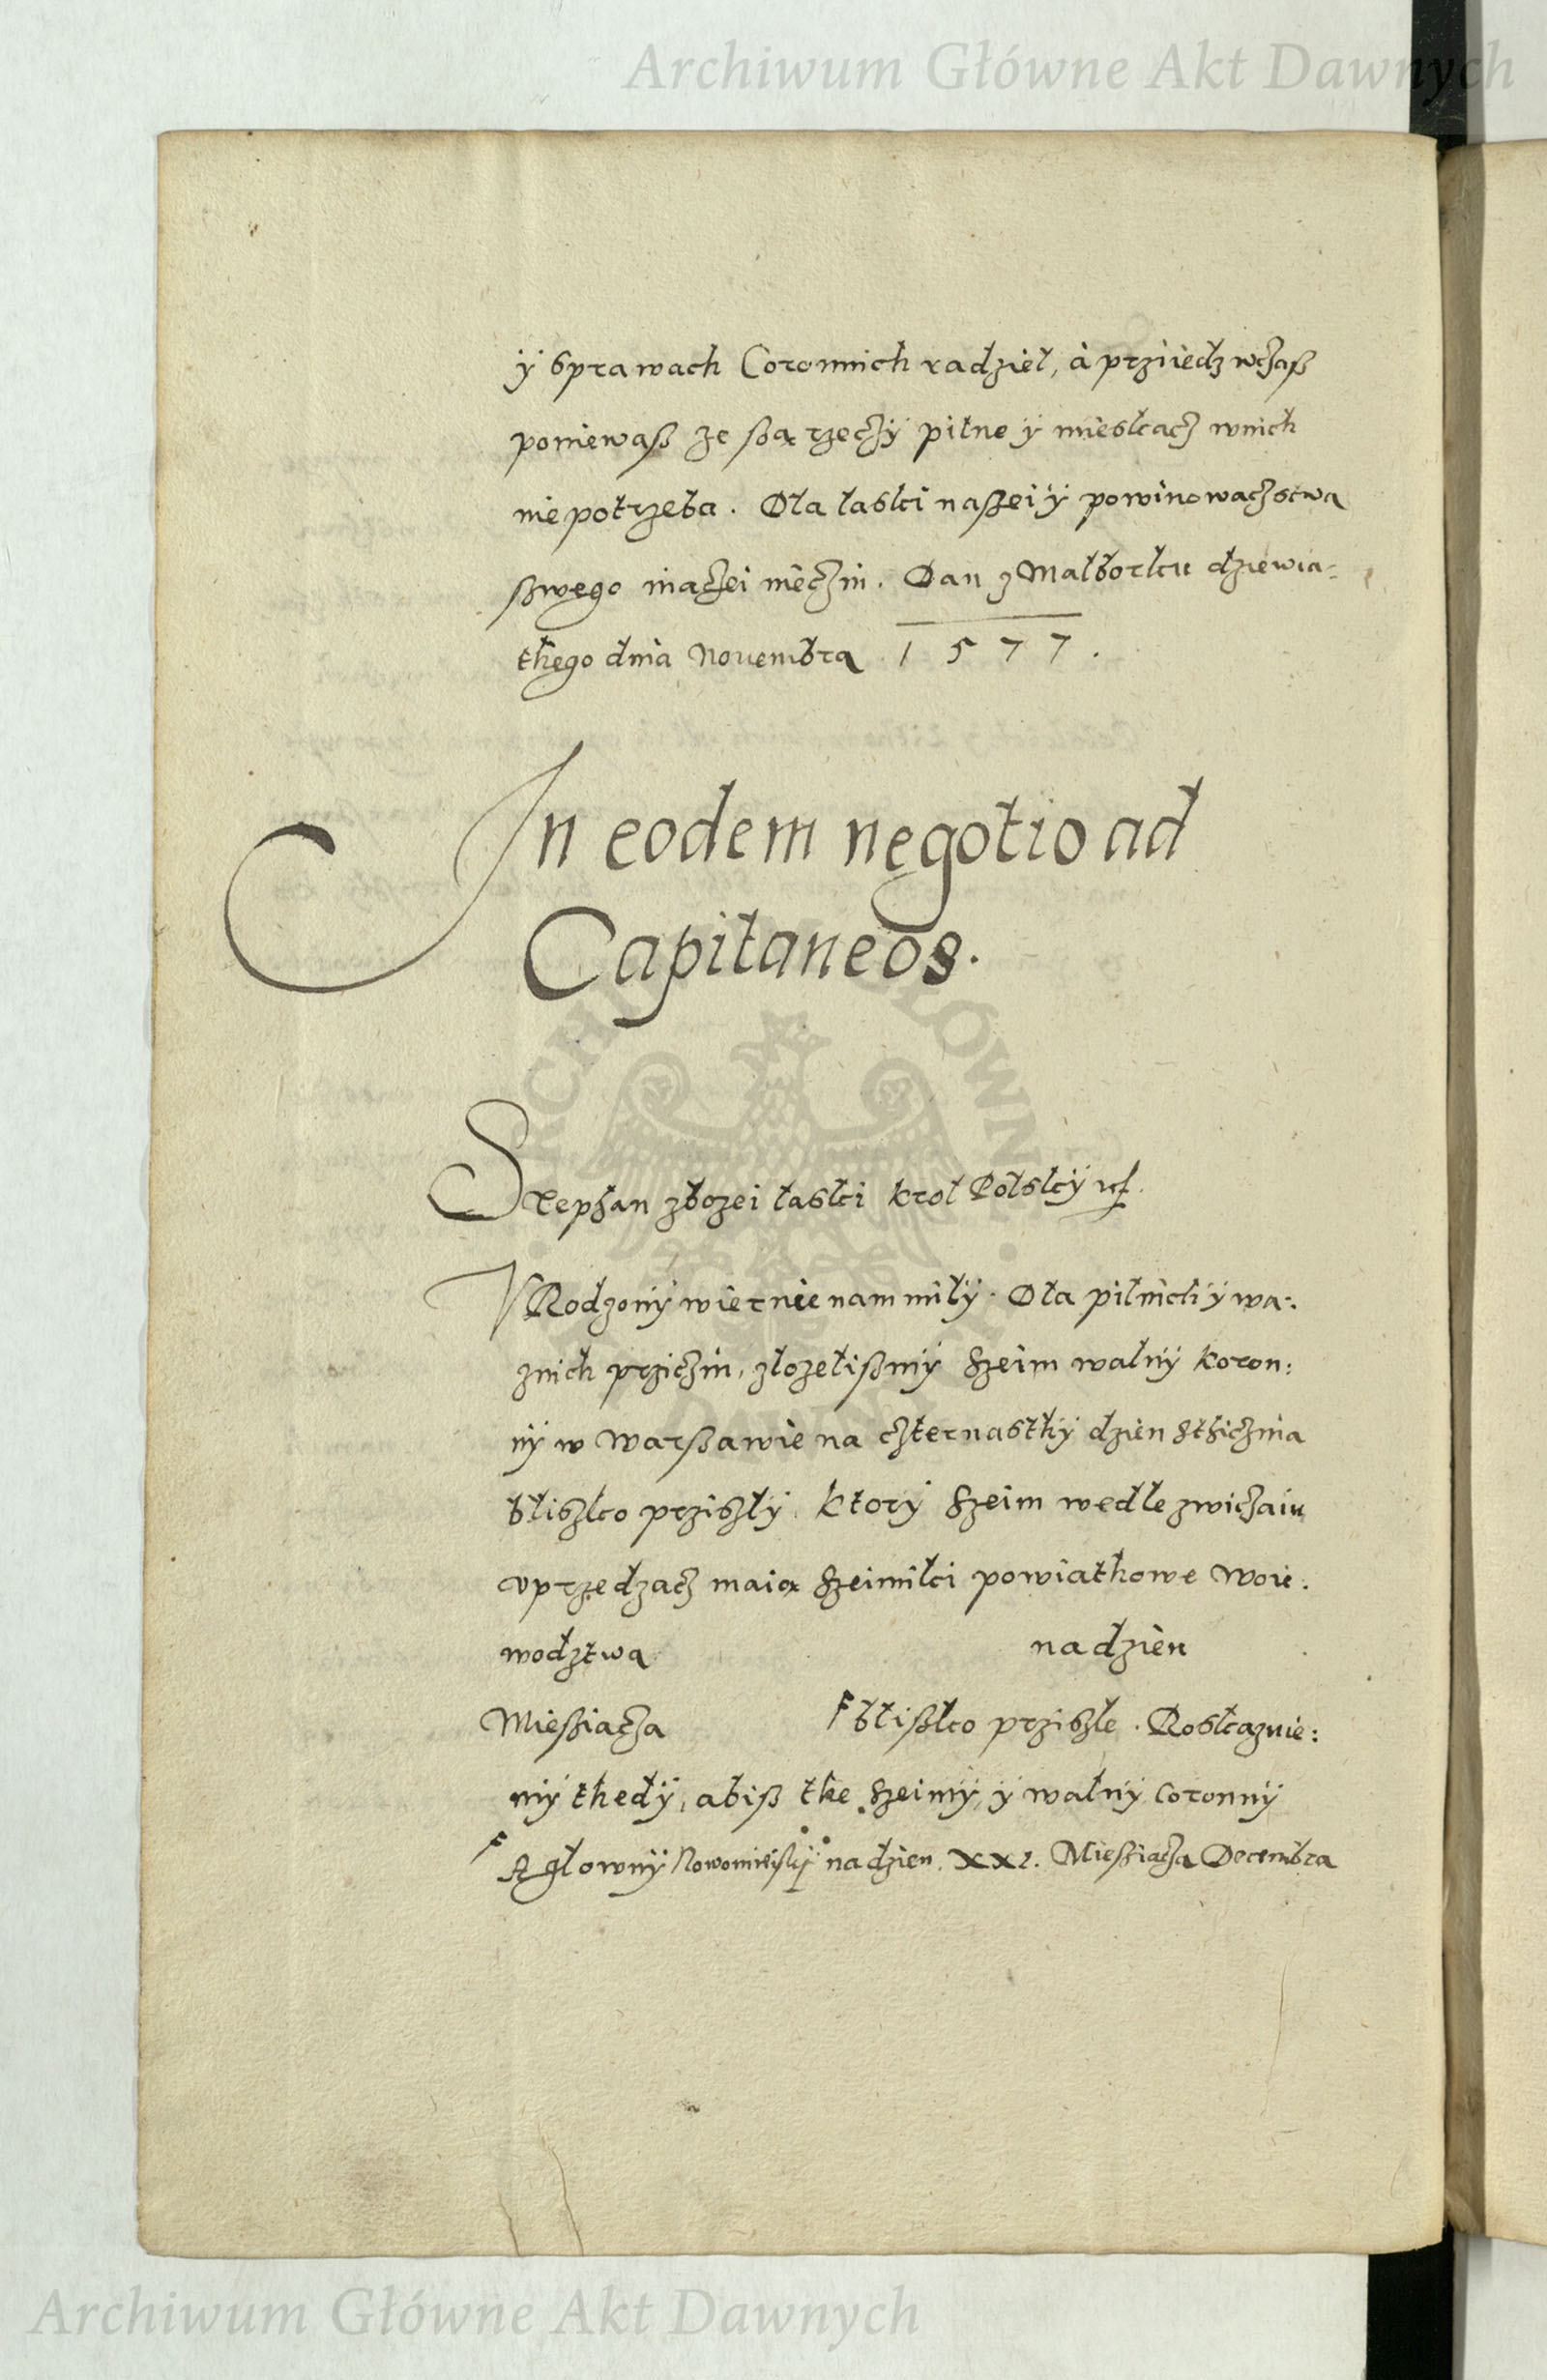 Archiwum Główne Akt Dawnych
ÿ sprawach Coronnich radzieł, à prziiedz wczaß
poniewaß ze ßą rzeczÿ pilne ÿ mieskacz wnich
niepotrzeba. Dla łaski naßei ÿ powinowaczstwa
ßwego inaczei nieczin. Dan z Malborku dziewia-
thego dnia Nouembra 1577.
In eodem negotio ad
Capitaneos.
Stephan zbozei łaski krol Polskÿ etc.
VRodzonÿ wiernie nam miłÿ. Dla pilnich ÿ wa-
znich prziczin, złozelißmÿ Szeim walnÿ koron:
nÿ w Warßawie na czternasthÿ dzien Sthicznia
bliszko prziszłÿ. Ktorÿ Szeim wedle zwiczaiu
vprzedzacz maią Szeimiki powiathowe Woie.
wodztwa na dzien
Mießiącza blißko priszle. Roskazuie:
mÿ thedÿ, abiß the Szeimÿ, ÿ walnÿ Coronnÿ
A głownÿ Nowomieiskÿ na dzien XXI. Mießiącza Decembra
ARCHIWUM GŁÓWNE AKT DAWNYCH
Archiwum Główne Akt Dawnych